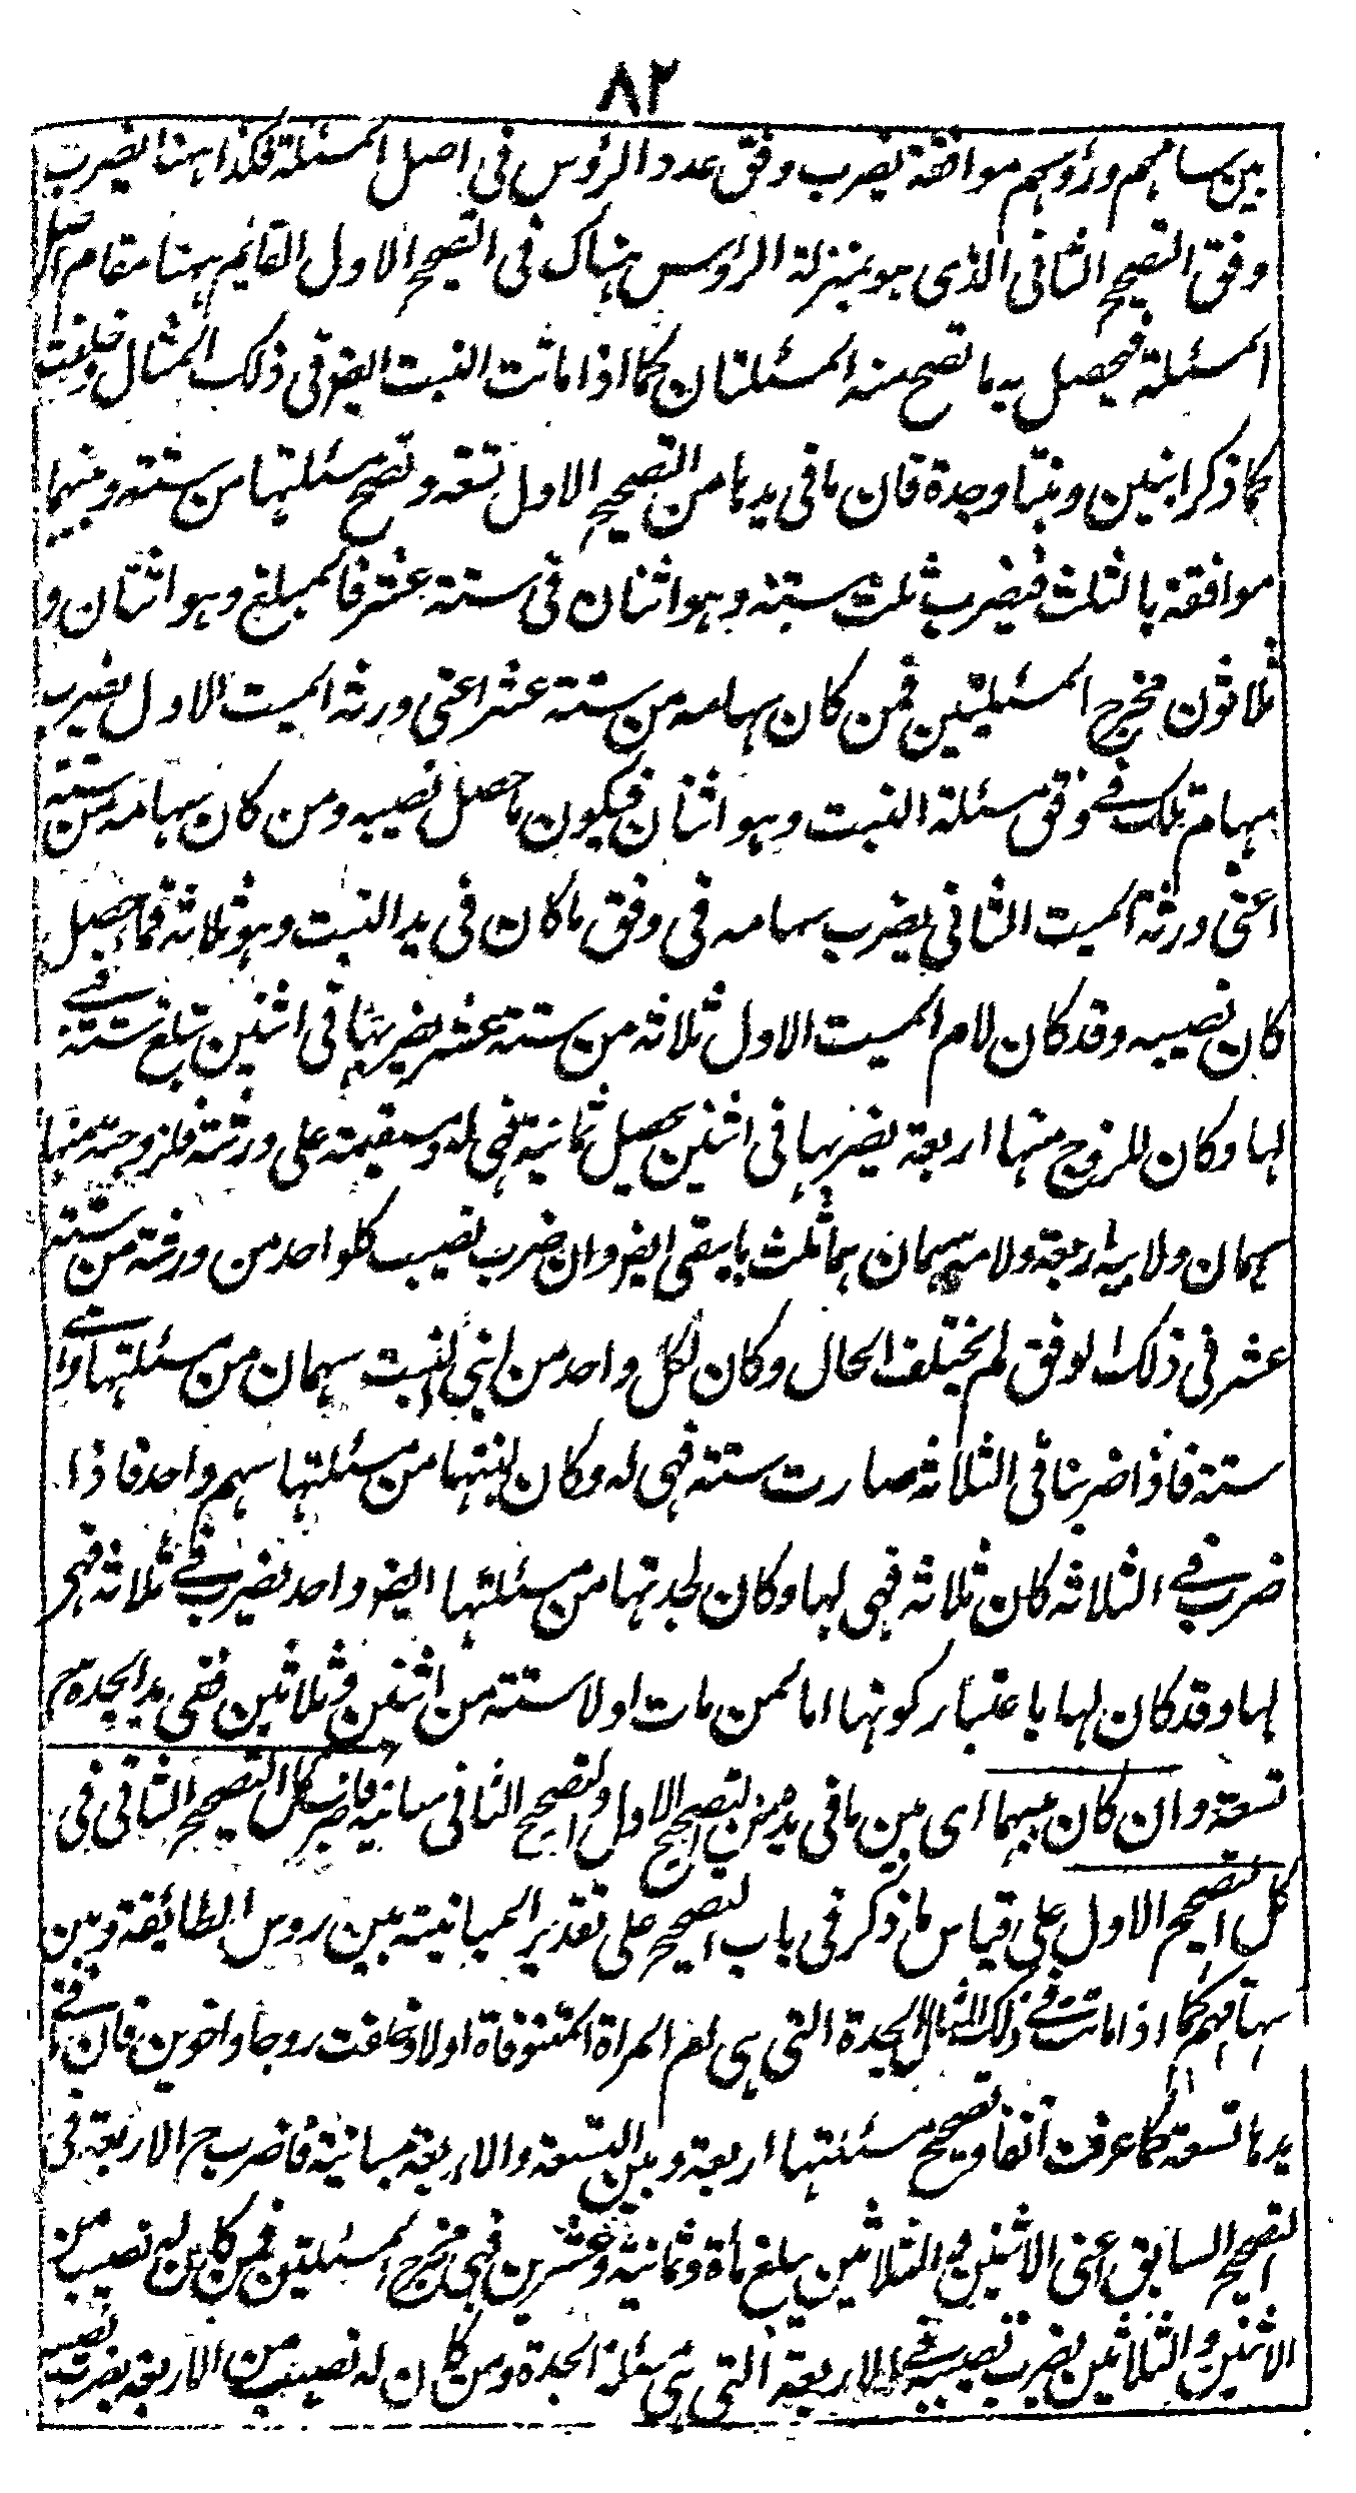 ٨٢
بين سهامهم ورؤسهم موافقة يضرب وفق عدد الرؤس في اصل المسئلة فكذا هنا يضرب
وفق التصحيح الثاني الذي هو بمنزلة الرؤس هناك في التصحيح الاول القايم ههنا مقام اصل
المسئلة فيحصل به ما تصح منه المسئلتان كما اذا ماتت البنت ايضا في ذلك المثال وخلفت
كما ذكر ابنين وبنتا وجدة فان ما في يدها من التصحيح الاول تسعة وتصح مسئلتها من ستة وبينهما
موافقة بالثلث فيضرب ثلث ستة وهو اثنان في ستة عشر فالمبلغ وهو اثنان و
ثلاثون مخرج المسئلتين فمن كان سهامه من ستة عشر اعني ورثة الميت الاول يضرب
سهام تلك في وفق مسئلة البنت وهو اثنان فيكون ما حصل نصيبه ومن كان سهامه من ستة
اعني ورثة الميت الثاني يضرب سهامه في وفق ما كان في يد البنت وهو ثلاثة فما حصل
كان نصيبه وقد كان لام الميت الاول ثلاثة من ستة عشر يضربها في اثنين تبلغ ستة فهي
لها وكان للزوج منها اربعة يضربها في اثنين يحصل ثمانية فهي له وسقيمة على ورثته فلزوجته منها
سهمان ولابيه اربعة ولامه سهمان هما ثلث ما يبقى ايضا وان ضرب نصيب كل واحد من ورثته من ستة
عشر في ذلك الوفق لم يختلف الحال وكان لكل واحد من ابني البنت سهمان من مسئلتها واى
ستة فاذا ضربنا في الثلاثة صارت ستة فهي له وكان لبنتها من مسئلتها سهم واحد فاذا
ضرب في الثلاثة كان ثلاثة فهي لها وكان لجدتها من مسئلتها ايضا واحد يضرب في ثلاثة فهي
لها وقد كان لها باعتبار كونها اما لمن مات اولا ستة من اثنين وثلاثين ففي يد الجدة ح
تسعة وان كان بينهما اى بين ما في يده من التصحيح الاول والتصحيح الثاني مباينة فاضرب كل التصحيح الثاني في
كل التصحيح الاول على قياس ما ذكر في باب التصحيح على تقدير المباينة بين روس الطائفة وبين
سهامهم كما اذا ماتت في ذلك المثال الجدة التي هي ام المراة المتوفاة اولا وخلفت زوجا واخوين فان ما في
يدها تسعة كما عرفت آنفا وتصحيح مسئلتها اربعة وبين التسعة والاربعة مباينة فاضرب ح الاربعة في
التصحيح السابق اعني الاثنين والثلاثين يبلغ مأة وثمانية وعشرين فهي مخرج المسئلتين فمن كان له نصيب من
الاثنين والثلاثين يضرب نصيبه في الاربعة التي هي مسئلة الجدة ومن كان له نصيب من الاربعة يضرب نصيبه